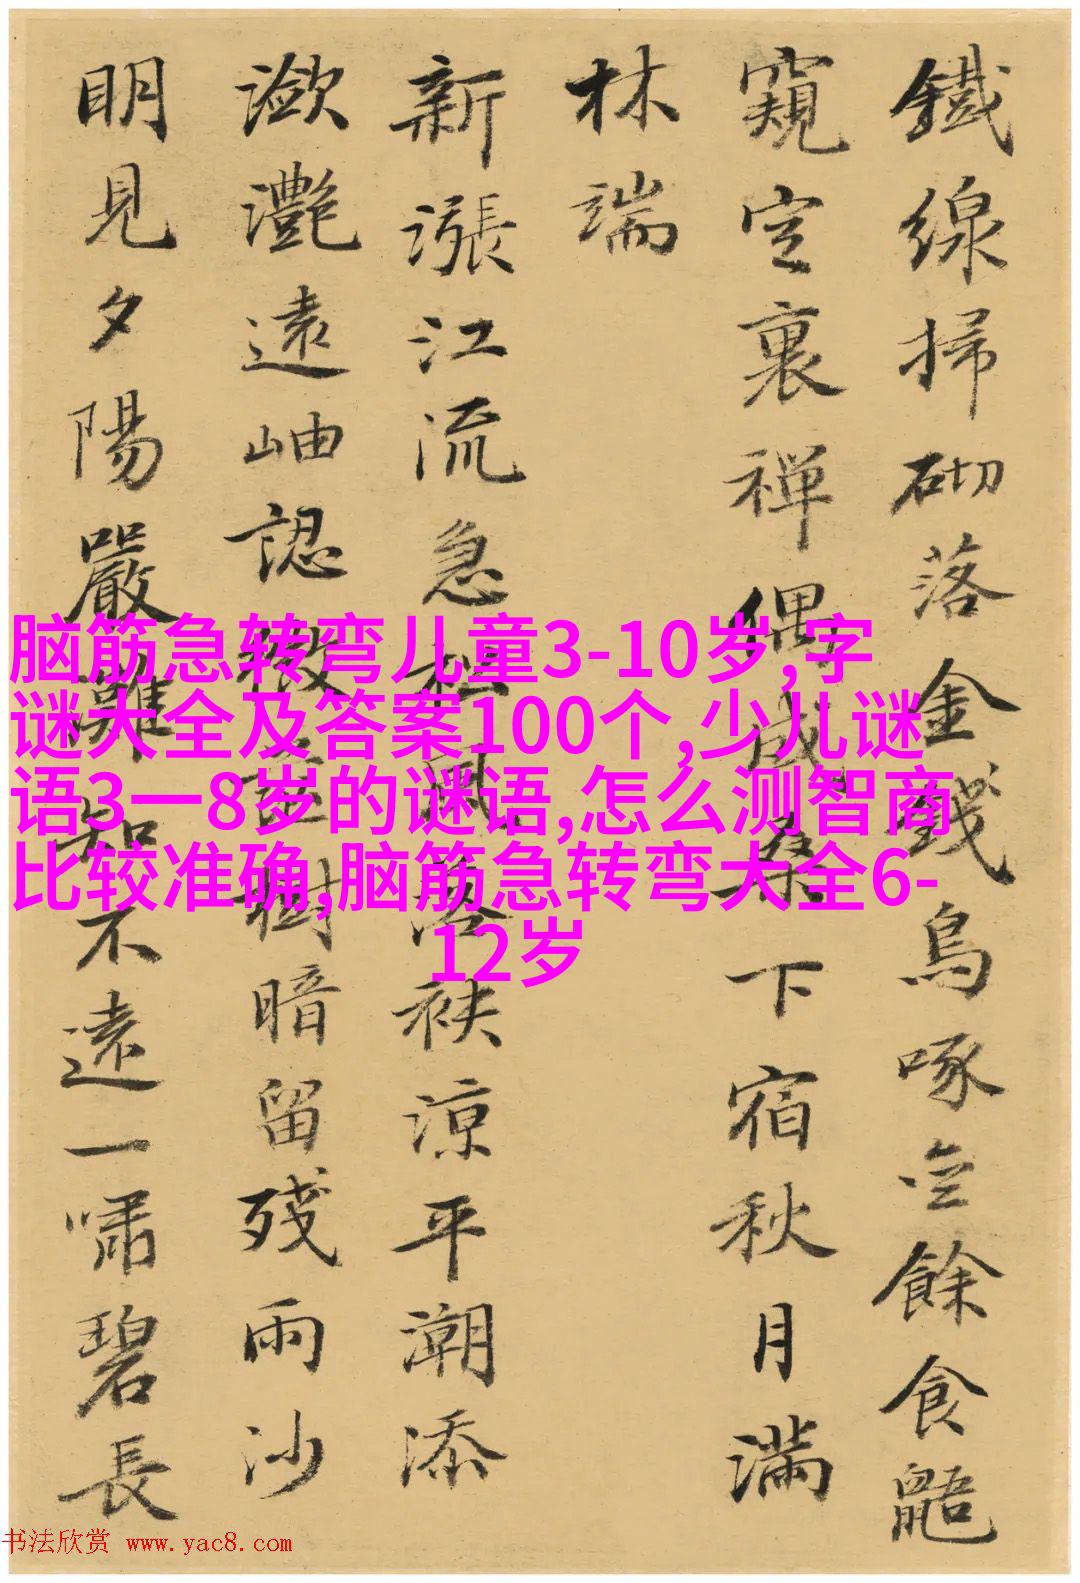 鐵線掃砌落金錢鳥啄空餘食鼯
窺空裏禅偶成桑下宿秋月滿
林端
新漲江流急松風落袂涼平潮添
瀲灔遠岫認巑杬樹暗留殘雨沙
明見夕陽嚴灘知不遠一嘯碧長
脑筋急转弯儿童3-10岁,字
谜大全及答案100个,少儿谜
语3一8岁的谜语,怎么测智商
比较准确,脑筋急转弯大全6-
12岁
书法欣赏 www.yac8.com